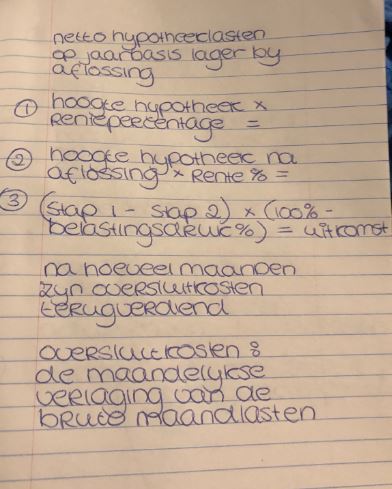 netto hypotheeklasten
op jaarbasis lager by
aflossing
① hoogte hypotheek ×
Rentepercentage =
② hoogte hypotheek na
aflossing × Rente % =
③ (stap 1 - stap 2) × (100% -
belastingsdruk %) = uitkomst
na hoeveel maanden
zyn oversluitkosten
terugverdiend
oversluitkosten :
de maandelykse
verlaging van de
bruto maandlasten